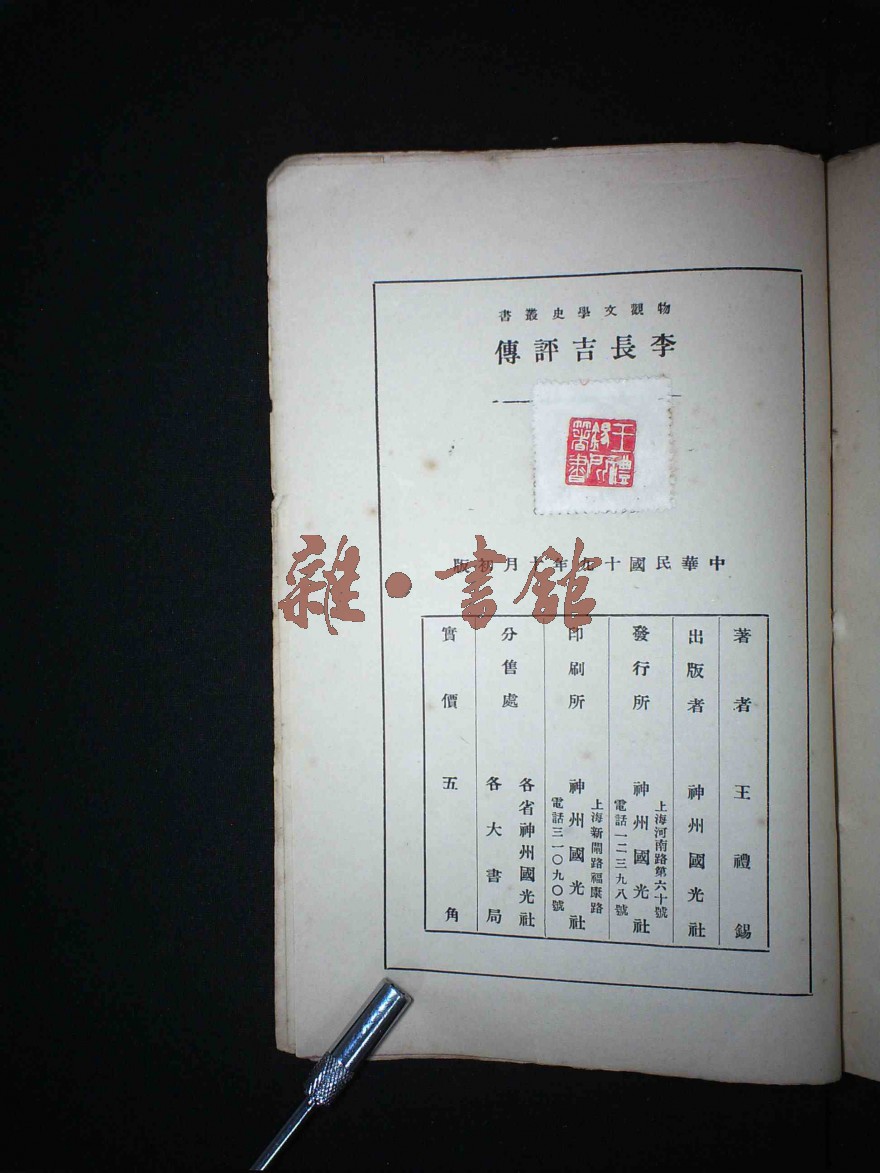 物觀文學史叢書
李長吉評傳
王禮錫所著書
中華民國十九年十月初版
著者 王禮錫
出版者 神州國光社
發行所 上海河南路第六十號
神州國光社
電話一二三九八號
印刷所 上海新閘路福康路
神州國光社
電話三一〇九〇號
分售處 各省神州國光社
各大書局
實價五角
雜·書館